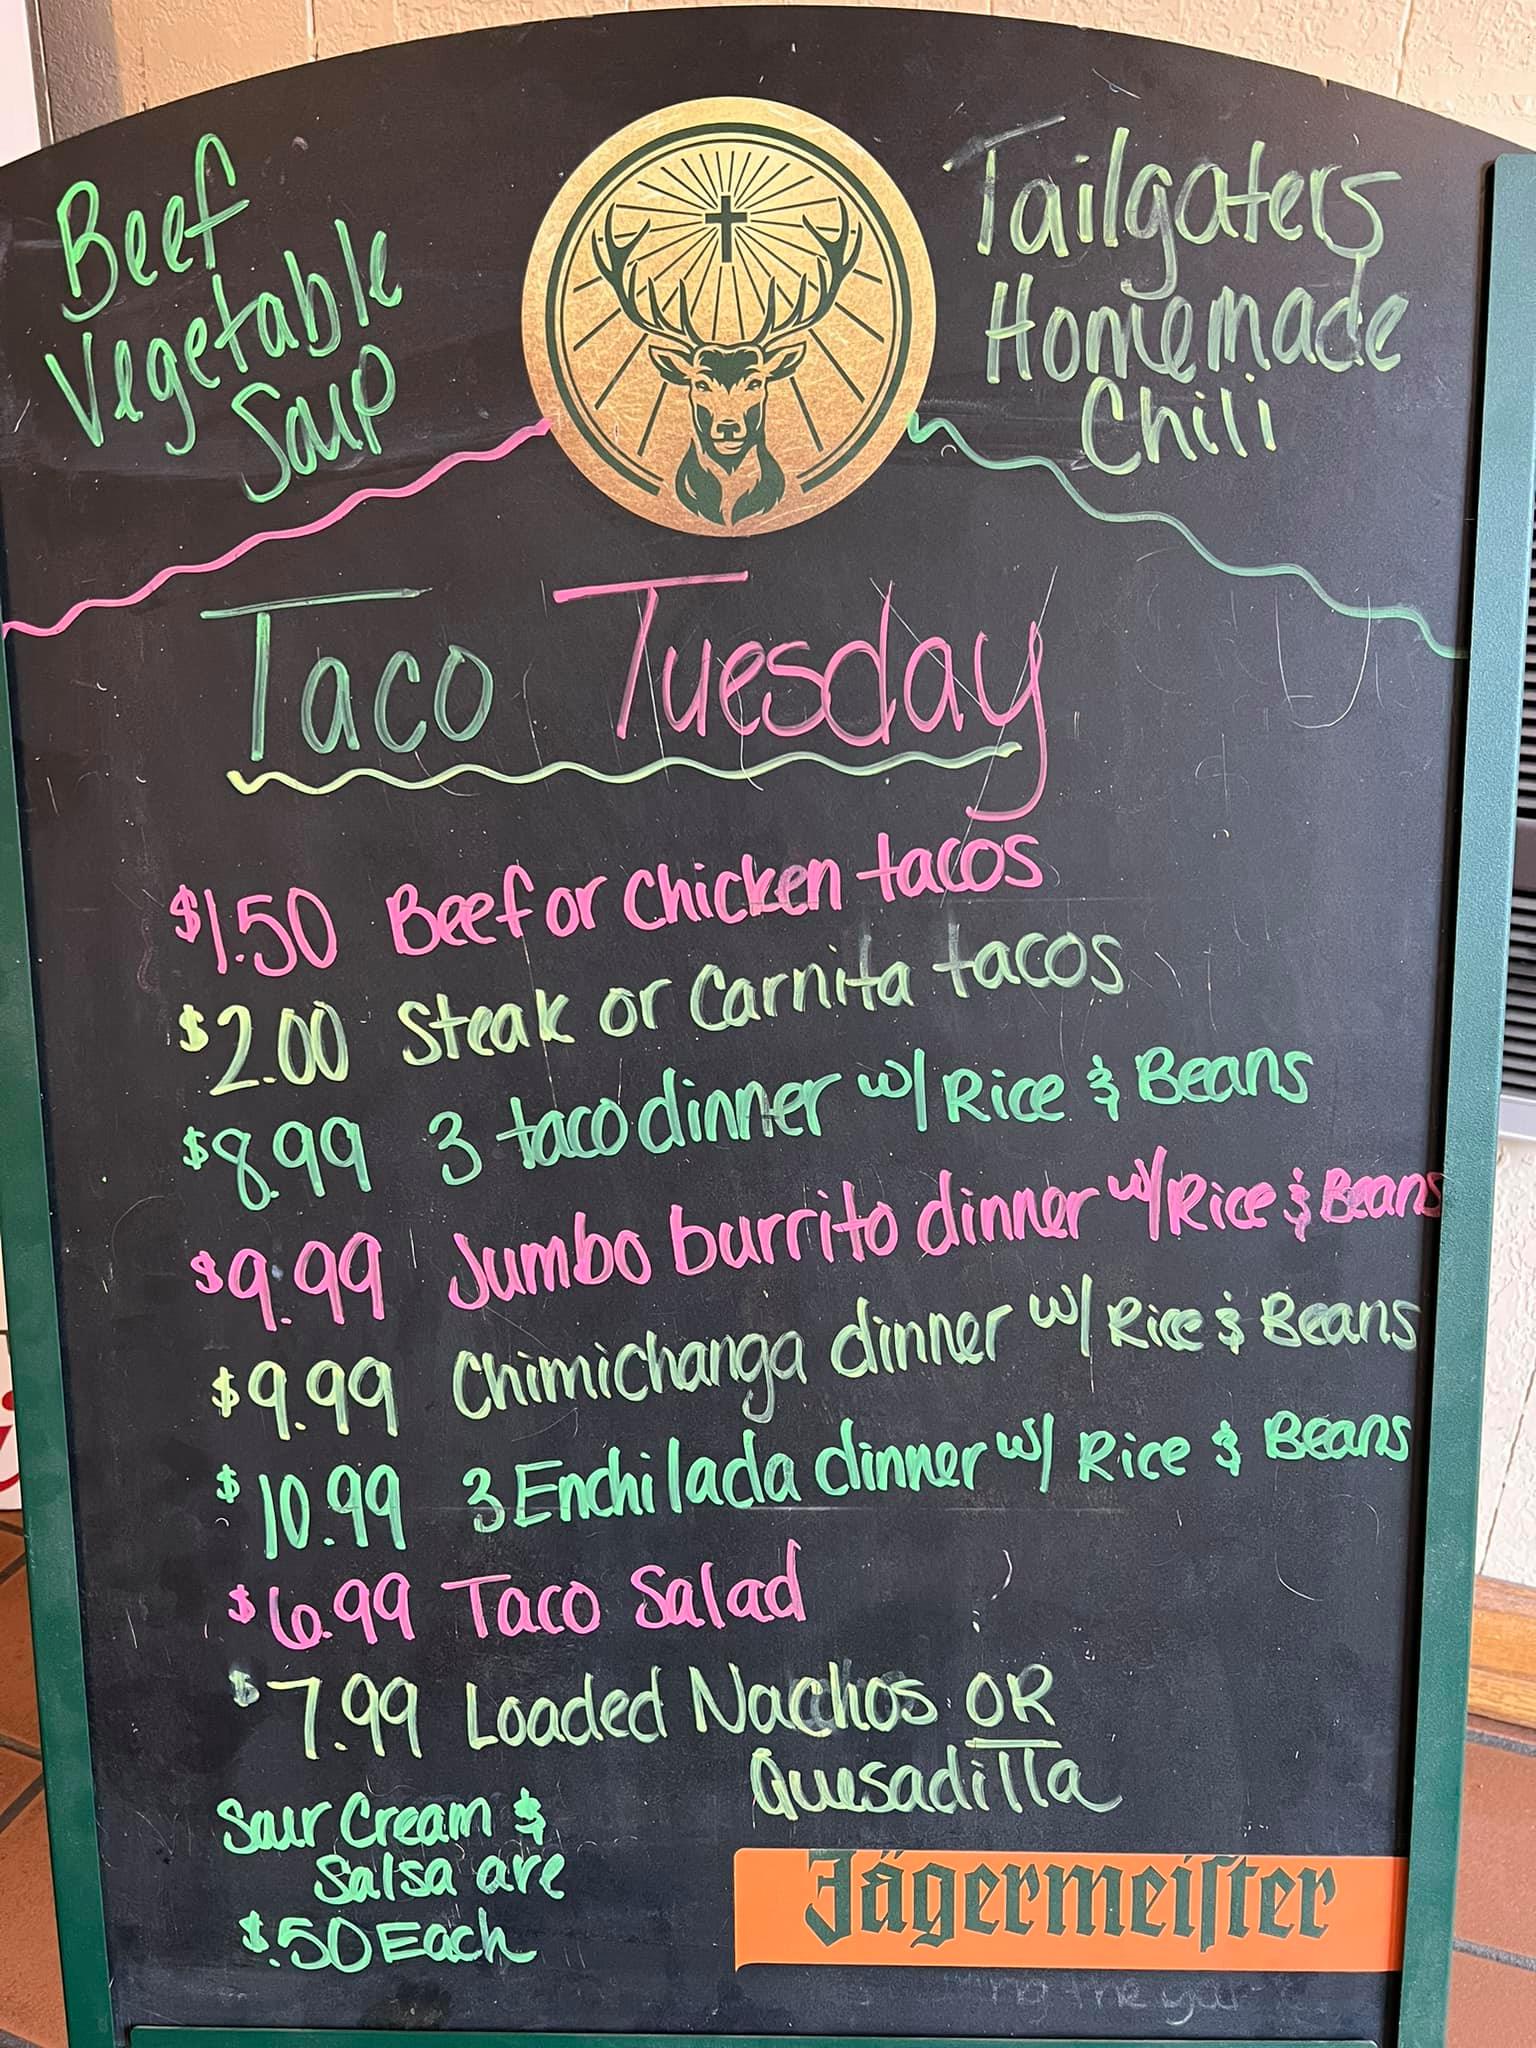 Beef
Vegetable
Soup
Tailgaters
Homemade
Chili
Taco Tuesday
$1.50 Beef or Chicken tacos
$2.00 Steak or Carnita tacos
$8.99 3 taco dinner w/ Rice & Beans
$9.99 Jumbo burrito dinner w/ Rice & Beans
$9.99 Chimichanga dinner w/ Rice & Beans
$10.99 3 Enchilada dinner w/ Rice & Beans
$6.99 Taco Salad
$7.99 Loaded Nachos OR
Quesadilla
Sour Cream &
Salsa are
$.50 Each
Jägermeiſter